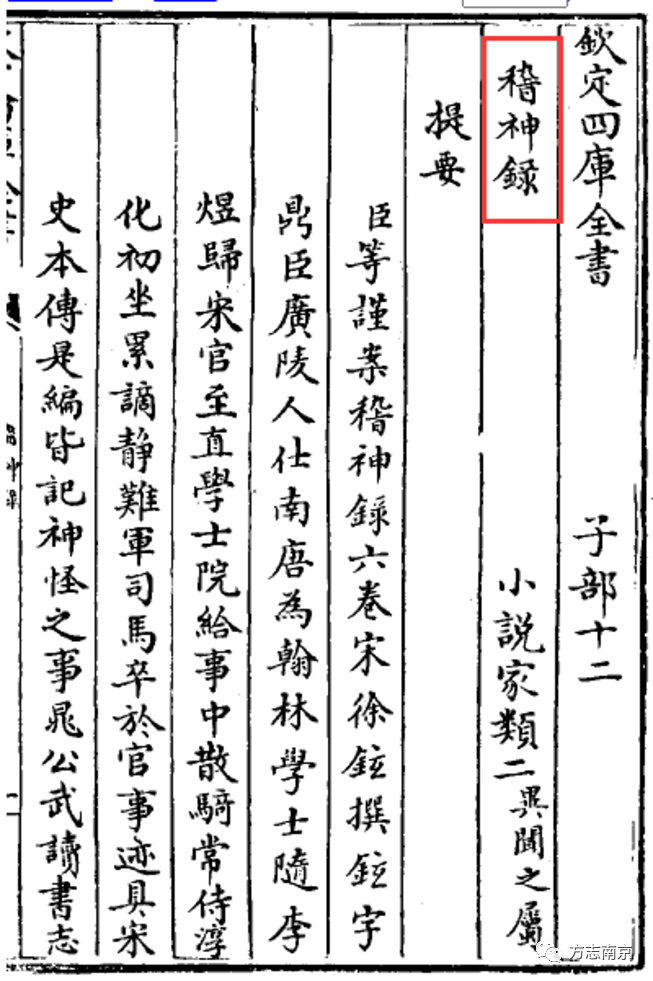 欽定四庫全書 子部十二
稽神録 小說家類二異聞之屬
提要
臣等謹案稽神錄六卷宋徐鉉撰鉉字
鼎臣廣陵人仕南唐為翰林學士隨李
煜歸宋官至直學士院給事中散騎常侍淳
化初坐累謫靜難軍司馬卒於官事迹具宋
史本傳是編皆記神怪之事晁公武讀書志
方志南京